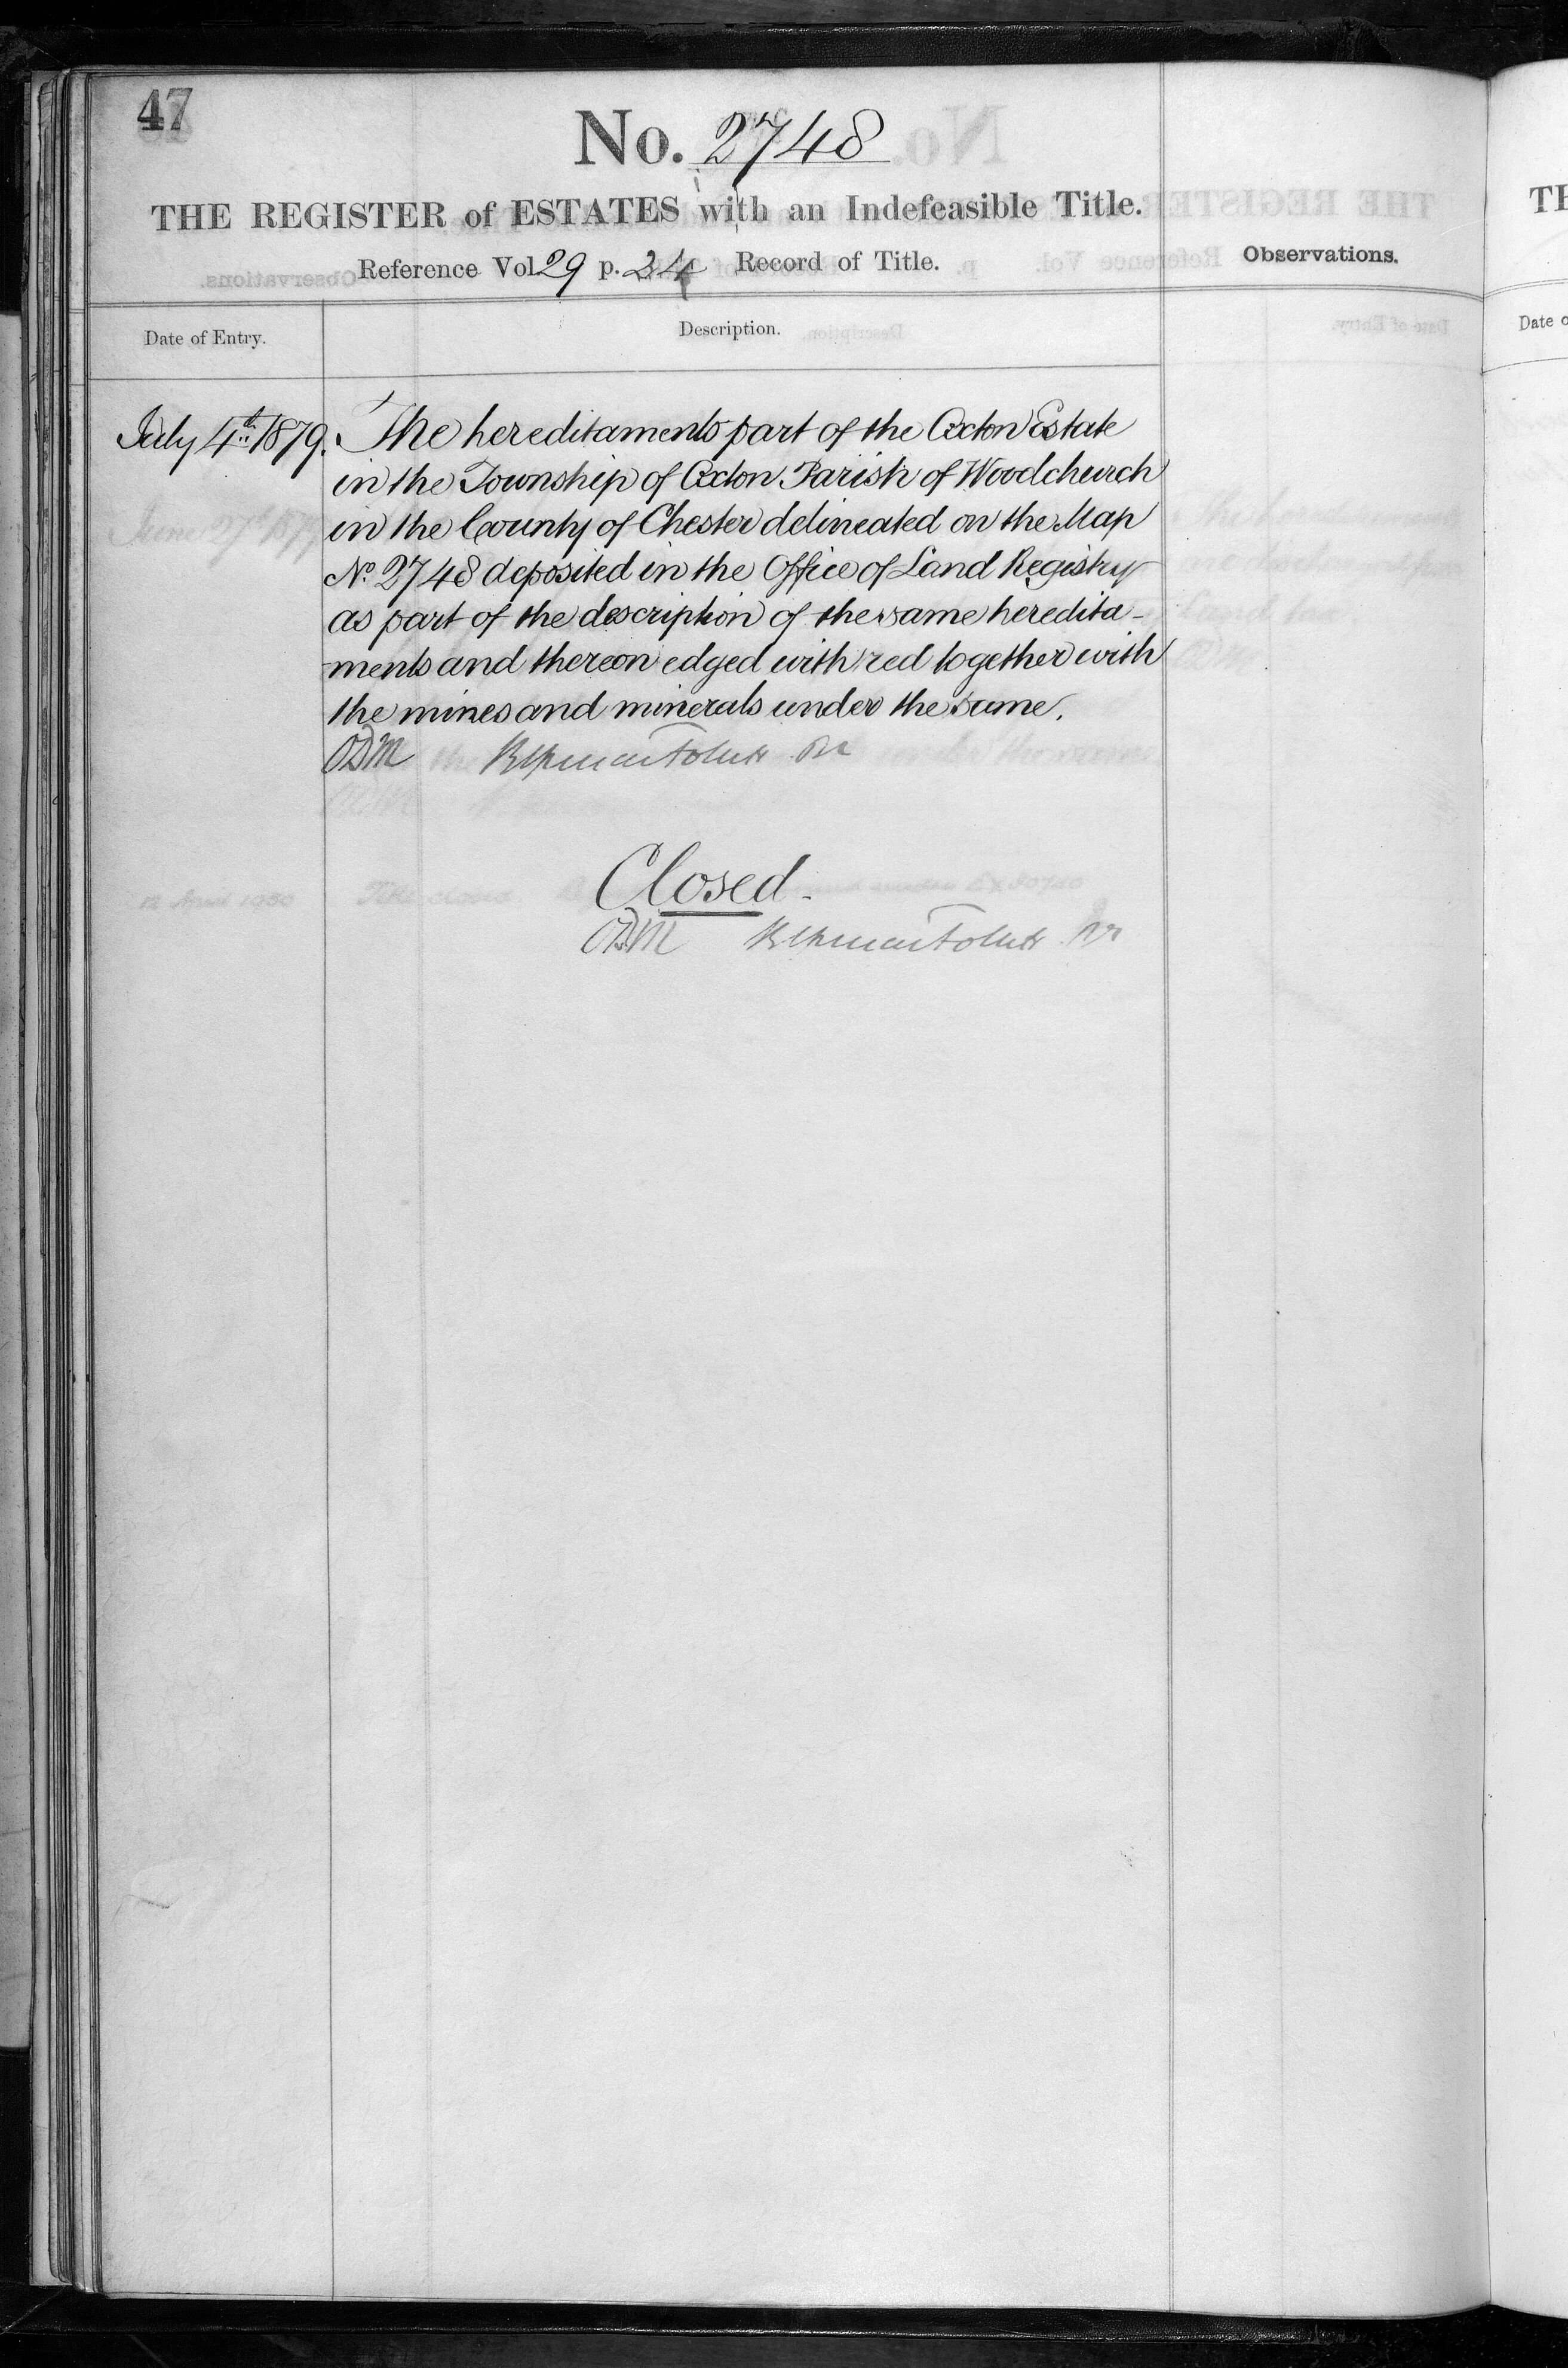 47
No. 2748
THE REGISTER of ESTATES with an Indefeasible Title.
Reference Vol 29 p. 34 Record of Title.
Observations.
Date of Entry.
Description.
July 4th 1879.
The hereditaments part of the Oxton Estate
in the Township of Oxton Parish of Woodchurch
in the County of Chester delineated on the Map
No. 2748 deposited in the Office of Land Registry
as part of the description of the same heredita-
-ments and thereon edged with red together with
the mines and minerals under the same.
ODM
Closed.
ODM
TH
Date o